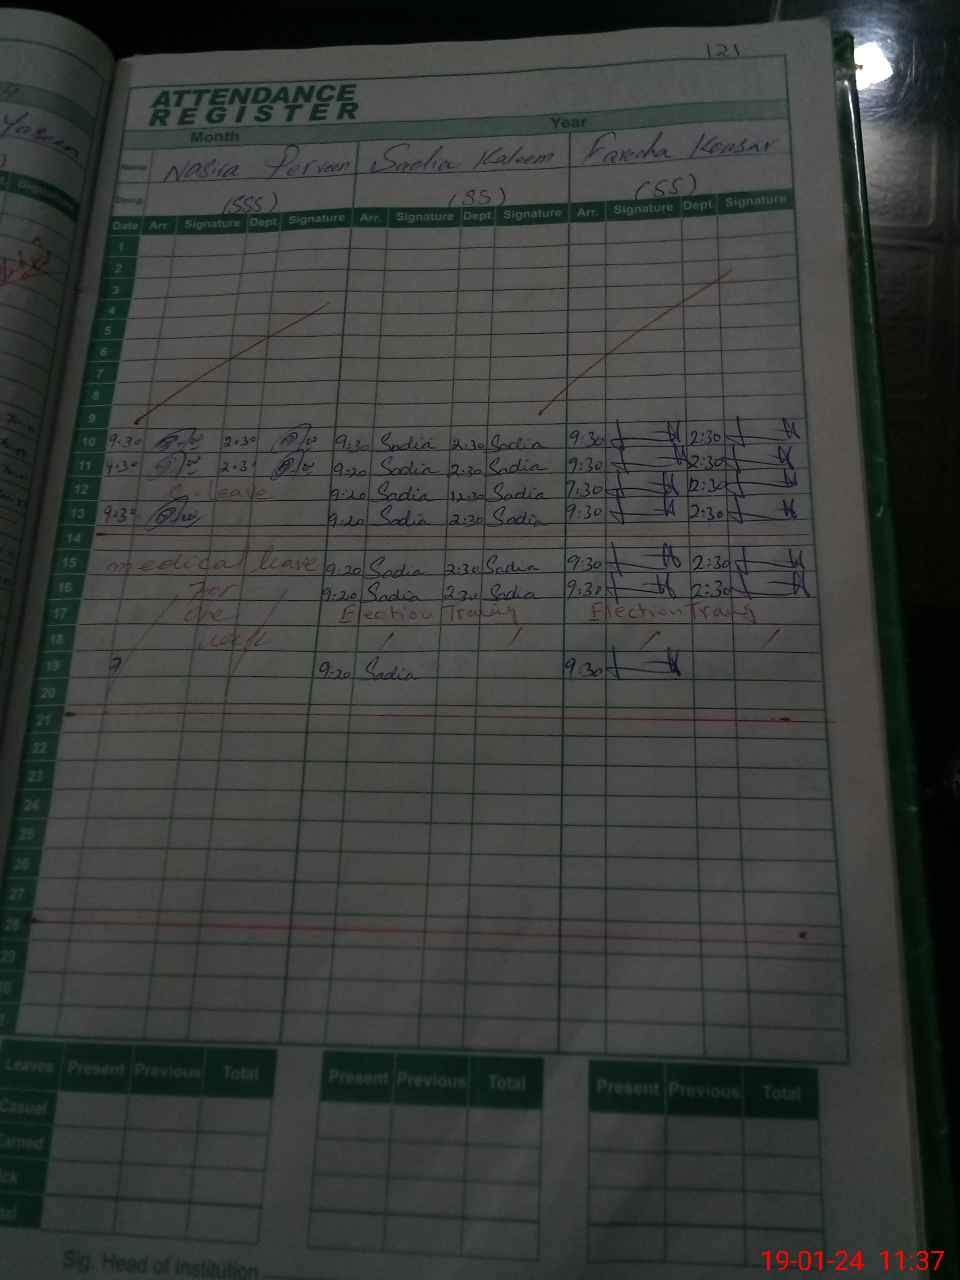 121
ATTENDANCE
REGISTER
Month Year
Name Nasira Perveen Sadia Kaleem Fareeha Kousar
Desig. (SSS) (SS) (SS)
Date Arr. Signature Dept. Signature Arr. Signature Dept. Signature Arr. Signature Dept. Signature
1
2
3
4
5
6
7
8
9
10 9:30 2:30 9:30 Sadia 2:30 Sadia 9:30 2:30
11 9:30 2:3 9:20 Sadia 2:30 Sadia 9:30 2:30
12 leave 9:20 Sadia 12:30 Sadia 12:30
13 9:30 9:20 Sadia 2:30 Sadia 9:30 2:30
14
15 medical leave 9:20 Sadia 2:30 Sadia 9:30 2:30
16 For 9:20 Sadia 2:30 Sadia 9:30 2:30
17 one Election Election
18 week
19 9:20 Sadia 9:30
20
21
22
23
24
25
26
27
28
29
Leaves Present Previous Total Present Previous Total Present Previous Total
Casual
Sig. Head of Institution
19-01-24 11:37